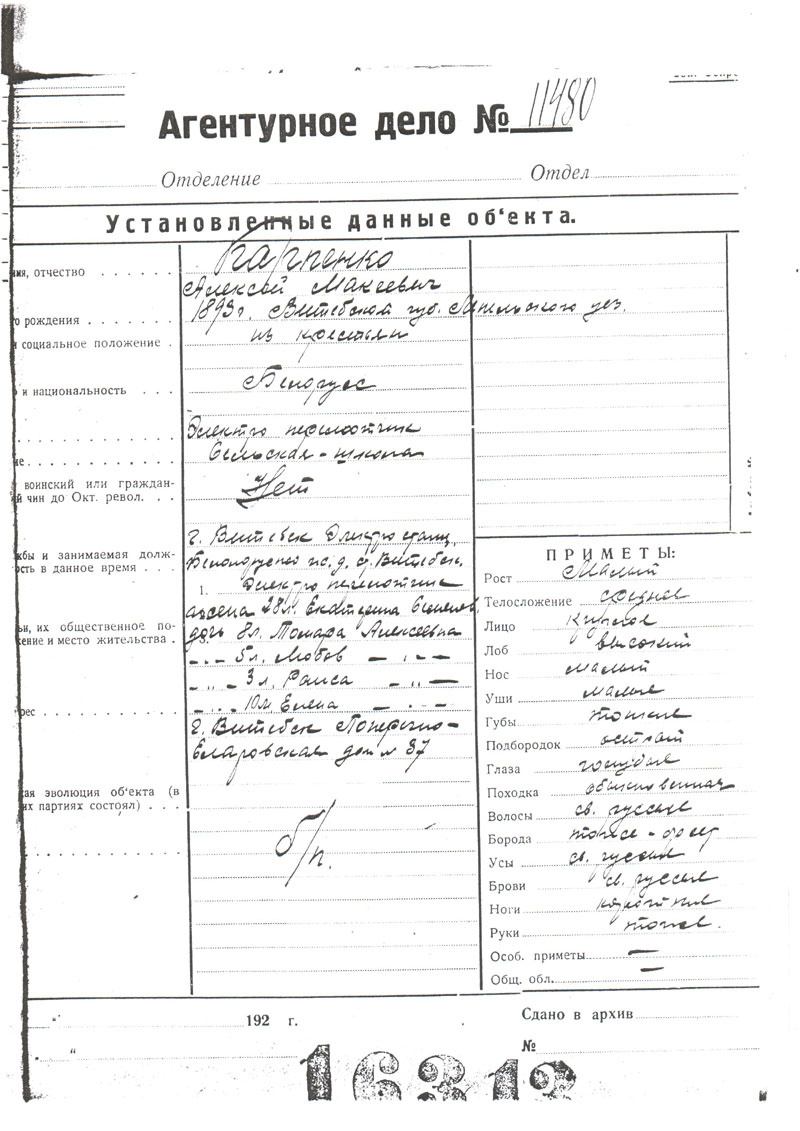 Агентурное дело № 11480
Отделение Отдел
Установленные данные об'екта.
имя, отчество
Карпенко
Алексей Макеевич
о рождения
1893 г. Витебской губ. Лепельского уез.
и социальное положение
из крестьян
и национальность
Белорус
Электро
Сельская-школа
воинский или граждан-
й чин до Окт. револ.
Нет
г. Витебск Электро станц.
жбы и занимаемая долж-
сть в данное время
г. Витебск.
1. Электро
жена 28 л. Екатерина Семенов.
ьи, их общественное по-
жение и место жительства
дочь 8 л. Томара Алексеевна
— „ — 5 л. Любов — „ —
— „ — 3 л. Раиса — „ —
— „ — 10 м Елена — „ —
рес
г. Витебск Поперечно-
дом № 37
ая эволюция об'екта (в
их партиях состоял)
б/п.
ПРИМЕТЫ:
Рост Малый
Телосложение среднее
Лицо круглое
Лоб высокий
Нос малый
Уши малые
Губы тонкие
Подбородок острый
Глаза голубые
Походка обыкновенная
Волосы св. русые
Борода
Усы св. русые
Брови св. русые
Ноги короткие
Руки тоже.
Особ. приметы —
Общ. обл. —
„ 192 г.
Сдано в архив
„
№
16313